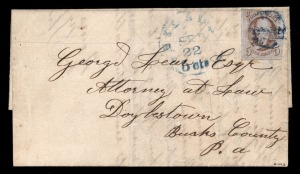 22
5 cts
George Lear Esqr
Attorney at Law
Doylestown
Bucks County
P. a